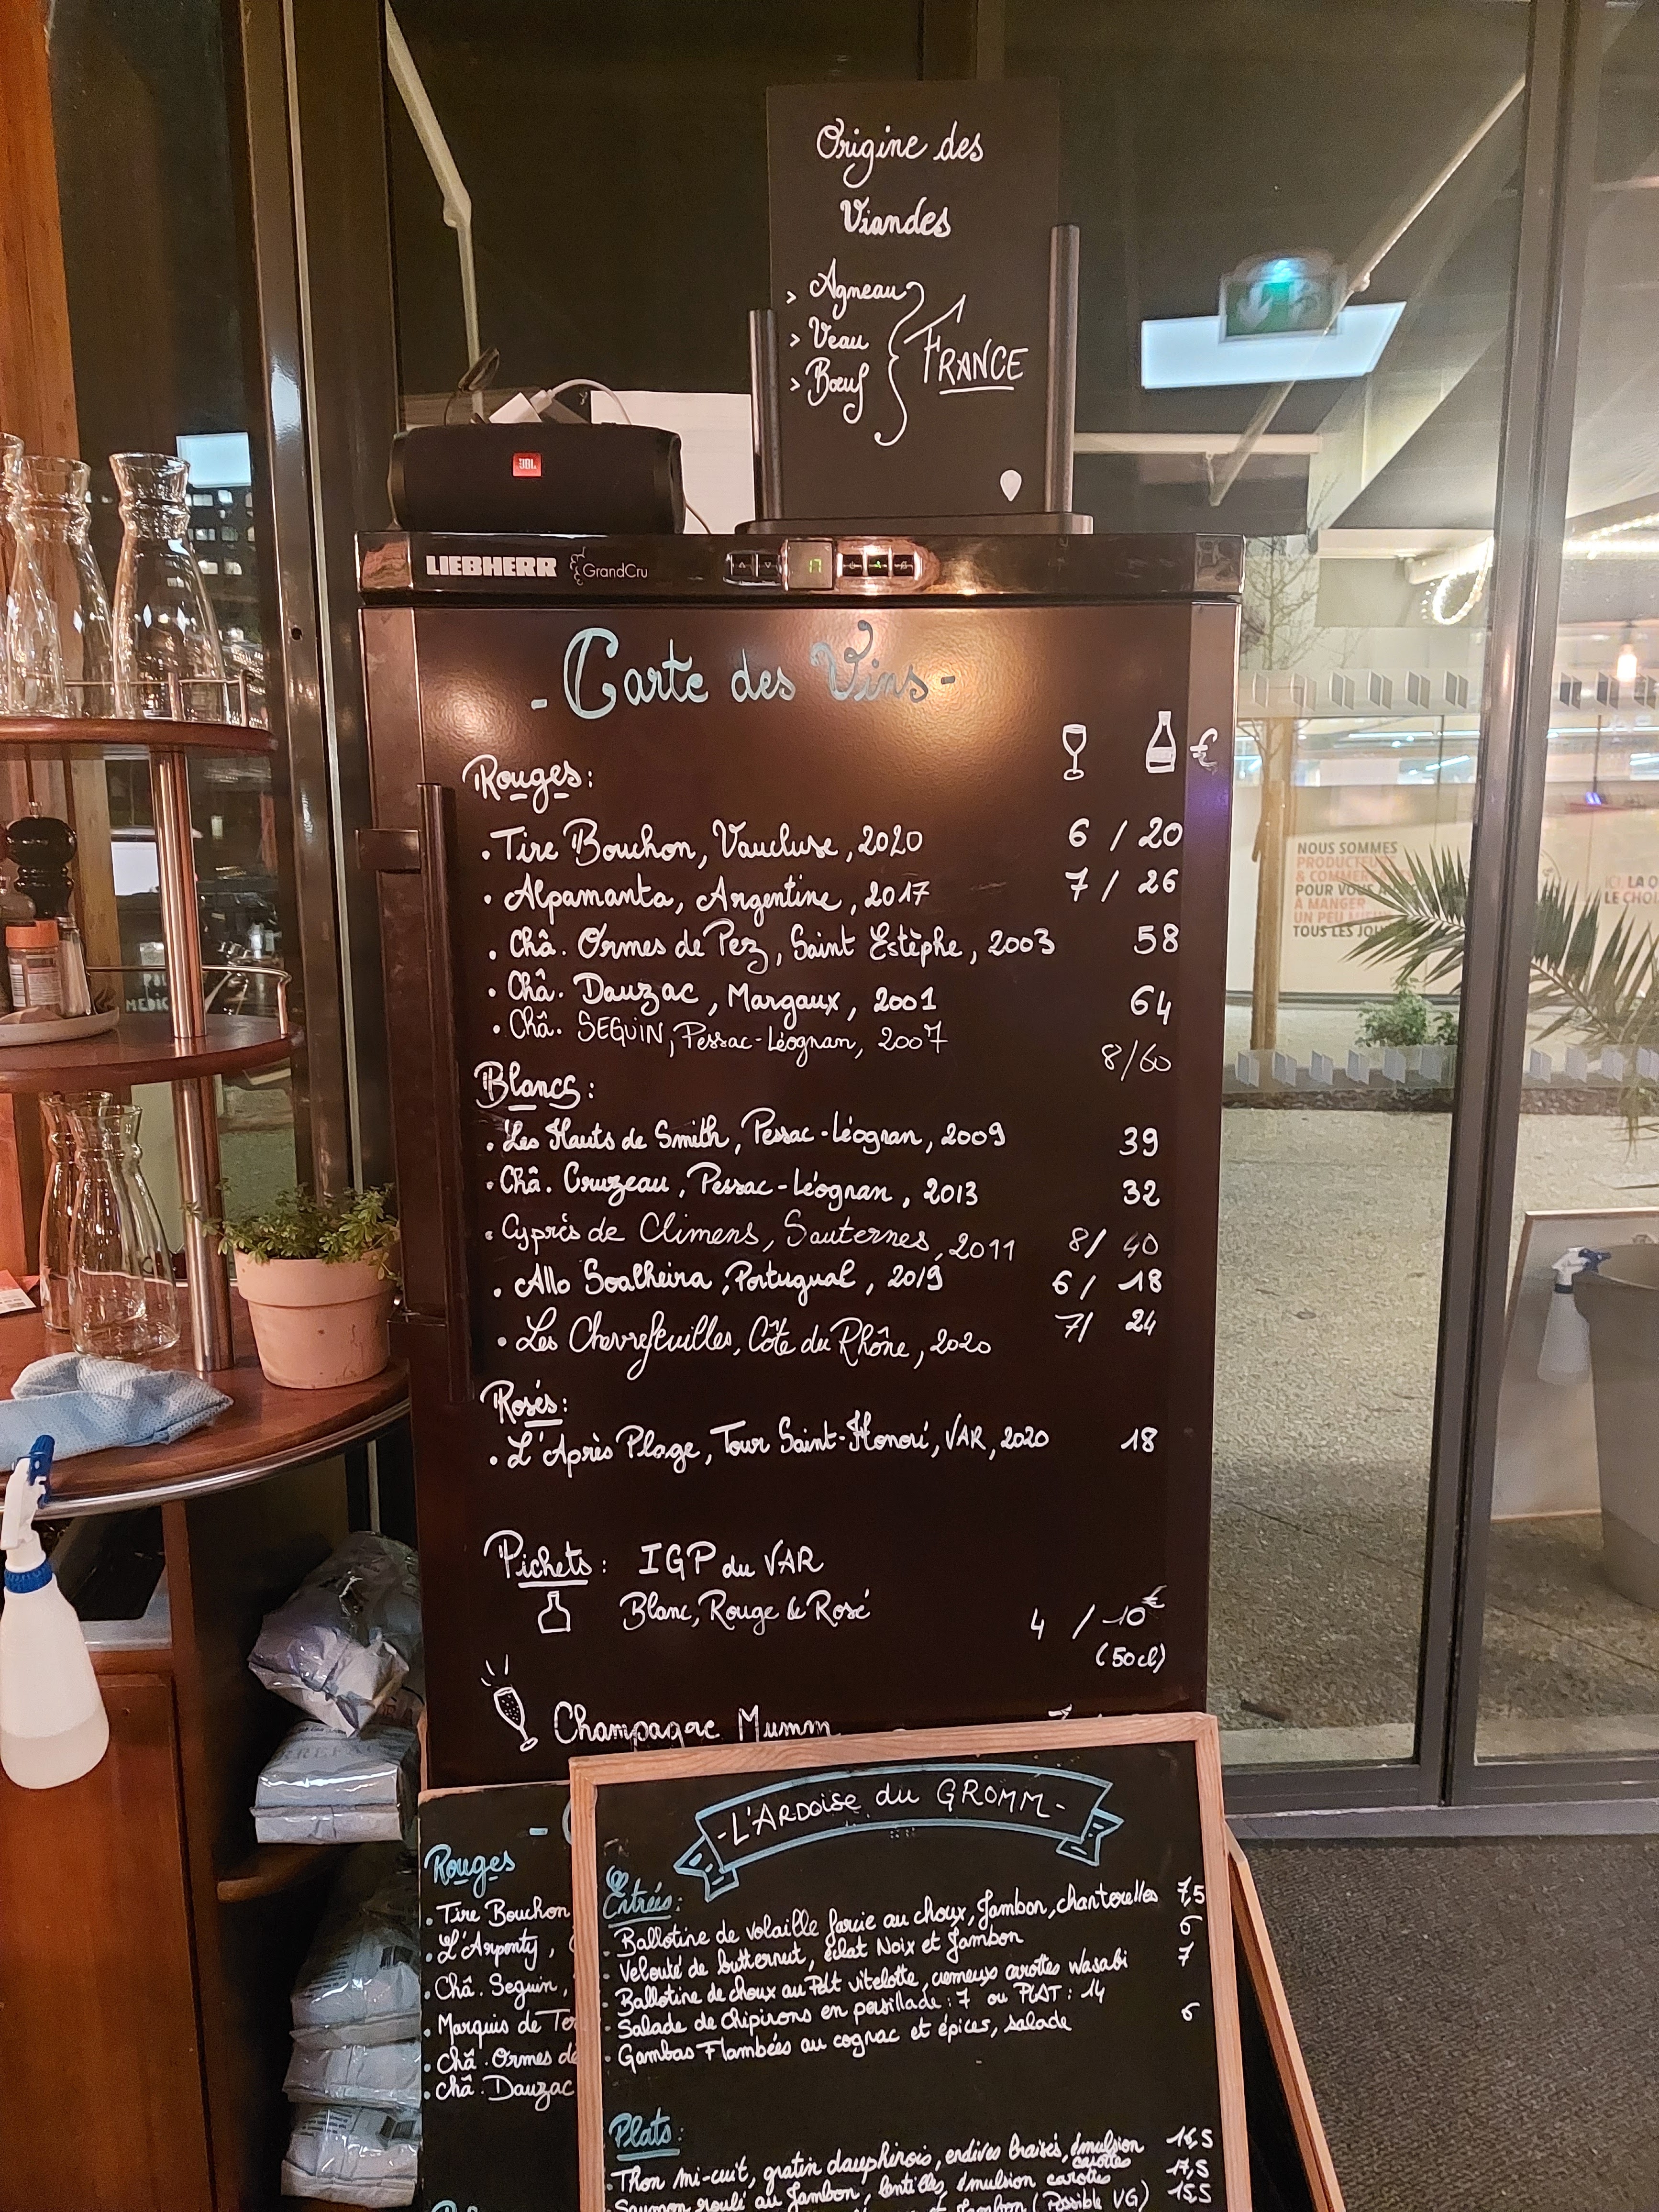 Origine des
Viandes
> Agneau
> Veau
> Bœuf
FRANCE
JBL
LIEBHERR GrandCru
17
- Carte des Vins -
€
Rouges:
• Tire Bouchon, Vaucluse, 2020 6 / 20
• Alpamanta, Argentine, 2017 7 / 26
• Châ. Ormes de Pez, Saint Estèphe, 2003 58
• Châ. Dauzac, Margaux, 2001 64
• Châ. SEGUIN, Pessac-Léognan, 2007 8/60
Blancs:
• Les Hauts de Smith, Pessac-Léognan, 2009 39
• Châ. Cruzeau, Pessac-Léognan, 2013 32
• Cyprés de Climens, Sauternes, 2011 8/ 40
• Allo Soalheira, Portugual, 2019 6 / 18
• Les Chevrefeuilles, Côte du Rhône, 2020 7/ 24
Rosés:
• L'Après Plage, Tour Saint-Honoré, VAR, 2020 18
Pichets: IGP du VAR
Blanc, Rouge & Rosé 4 / 10€
(50cl)
Champagne Mumm
NOUS SOMMES
PRODUCTEURS
& COMMERÇ
POUR VOUS A
À MANGER
UN PEU MIEUX
TOUS LES JOU
LA Q
LE CHOI
-L'ARDOISE du GROMM-
Entrées:
• Ballotine de volaille farcie au choux, Jambon, chanterelles 7,5
• Velouté de butternut, éclat Noix et Jambon 6
• Ballotine de choux au Pdt vitelotte, cremeux carottes wasabi 7
• Salade de chipirons en persillade: 7 ou PLAT: 14
• Gambas Flambées au cognac et épices, salade 6
Plats:
• Thon mi-cuit, gratin dauphinois, endives braisés, émulsion carottes 16,5
Saumon roulé au Jambon, lentilles, émulsion carottes 17,5
et Jambon (Possible VG) 15,5
Rouges
• Tire Bouchon
• L'Arponty,
• Châ. Seguin,
• Marquis de Ter
• Châ. Ormes de
• Châ. Dauzac